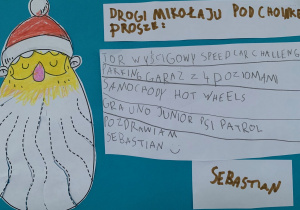 DROGI MIKOŁAJU POD CHOINKĘ
PROSZĘ:
TOR WYŚCIGOWY SPEED CAR CHALLENG
PARKING GARAŻ Z 4 POZIOMAMI
SAMOCHODY HOT WHEELS
GRA UNO JUNIOR PSI PATROL
POZDRAWIAM
SEBASTIAN
SEBASTIAN